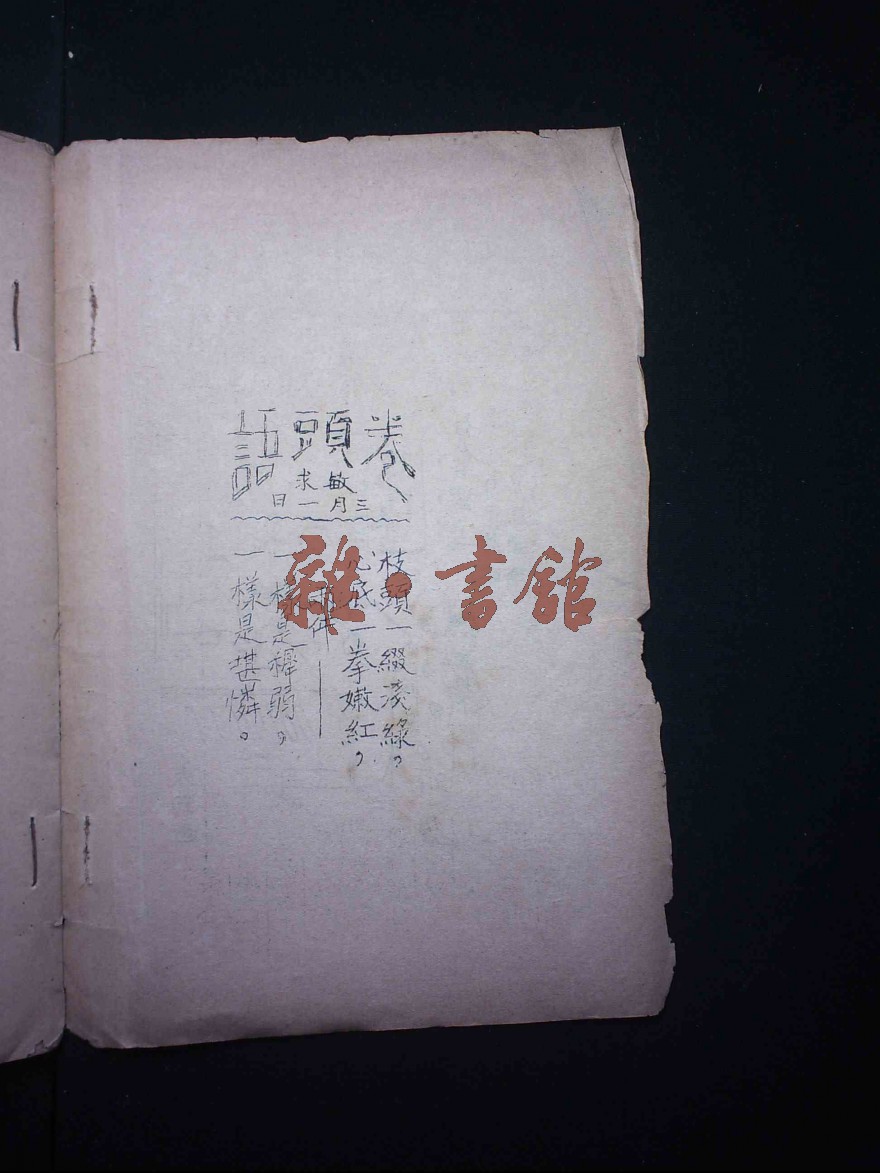 卷頭語
敏求
三月一日
枝頭一綴淺綠，
心底一拳嫩紅，
兩件——
一樣是穉弱，
一樣是堪憐。
雜·書館